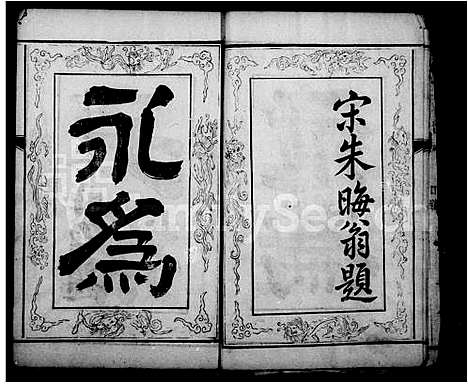 宋朱晦翁題
永為